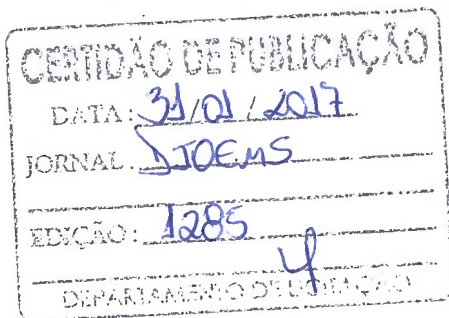 CERTIDÃO DE PUBLICAÇÃO
DATA: 31/01/2017
JORNAL: DJOEMS
EDIÇÃO: 1285
DEPARTAMENTO DE LICITAÇÃO